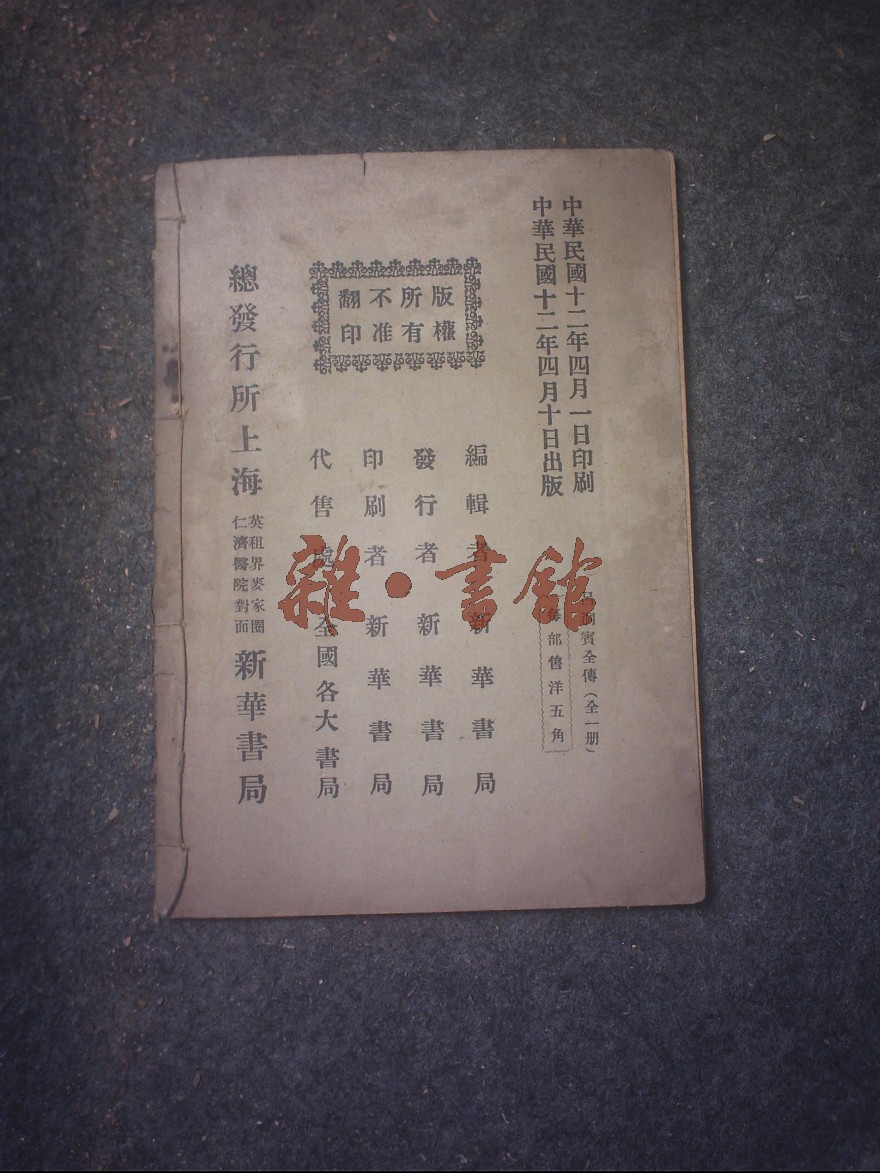 中華民國十二年四月一日印刷
中華民國十二年四月十日出版
洞賓全傳（全一册）
每部售洋五角
版權
所有
不准
翻印
編輯者 新華書局
發行者 新華書局
印刷者 新華書局
代售處 全國各大書局
總發行所上海
英租界麥家圈
仁濟醫院對面
新華書局
雜·書館